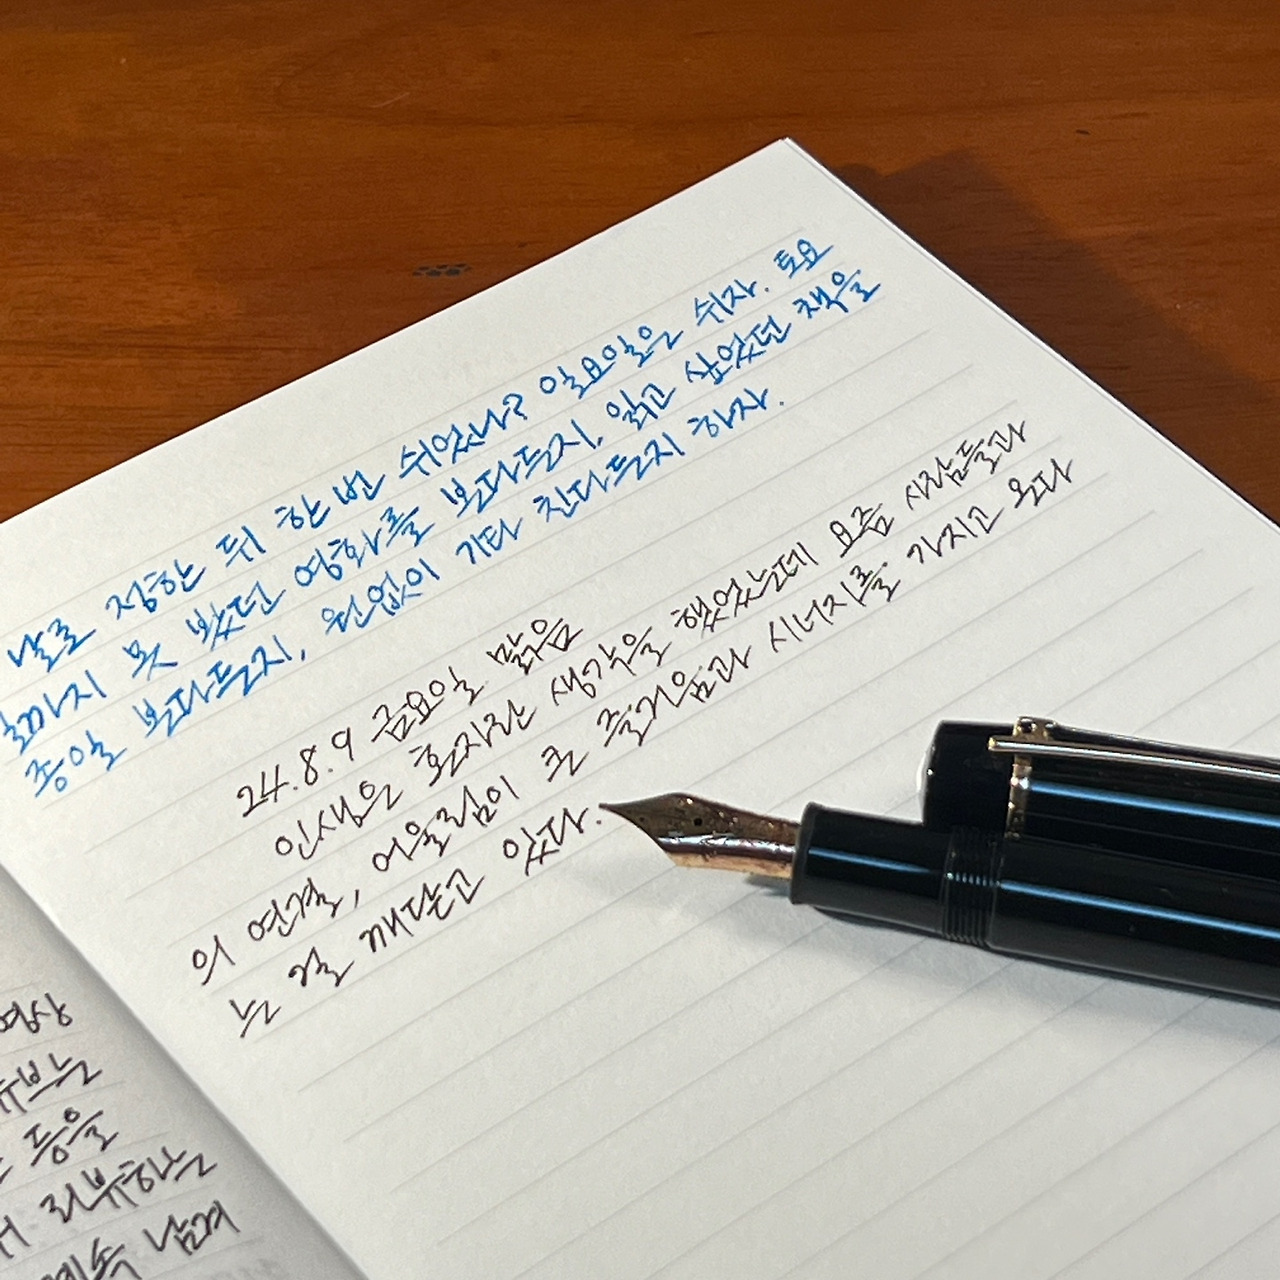 날로 정한 뒤 한 번 쉬었나? 일요일은 쉬자. 토요
일까지 못 봤던 영화를 본다든지, 읽고 싶었던 책을
종일 본다든지, 원없이 기타 친다든지 하자.
24.8.9 금요일 맑음
인생은 혼자란 생각을 했었는데 요즘 사람들과
의 연결, 어울림이 큰 즐거움과 시너지를 가지고 온다
는 걸 깨닫고 있다.
영상
튜브는
등을
리뷰하는
계속 남겨